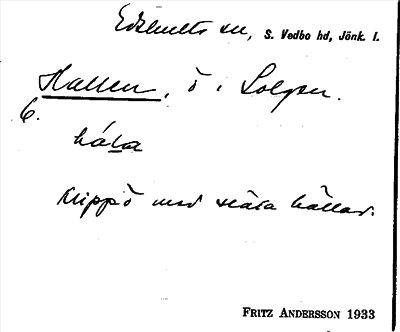 Edshults sn, S. Vedbo hd, Jönk. l.
Hallen, ö i Solgen.
6.
hála
Klippö med släta hällar.
FRITZ ANDERSSON 1933